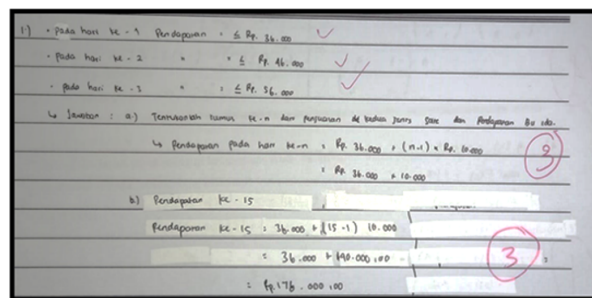 1.) • Pada hari ke - 1 Pendapatan = ≤ Rp. 36.000
• Pada hari ke - 2 " = ≤ Rp. 46.000
• Pada hari ke - 3 " = ≤ Rp. 56.000
↳ Jawaban : a.) Tentukanlah rumus ke-n dari penjualan de kedua jenis dan Pendapatan Bu Ida.
↳ Pendapatan pada hari ke-n = Rp. 36.000 + (n-1) × Rp. 10.000
= Rp. 36.000 + 10.000
3
b.) Pendapatan ke - 15
Pendapatan ke - 15 = 36.000 + (15 - 1) 10.000
= 36.000 + 140.000,00
3
= Rp. 176.000,00